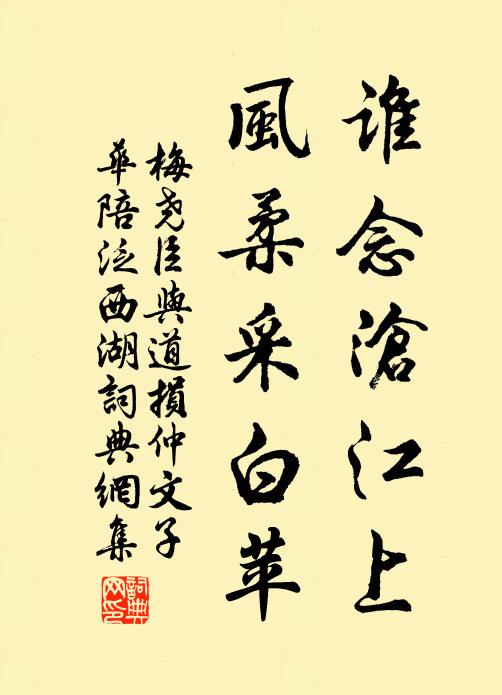 誰念滄江上
風柔采白苹
梅堯臣與道損仲文子
華陪泛西湖詞典網集
詞典網印